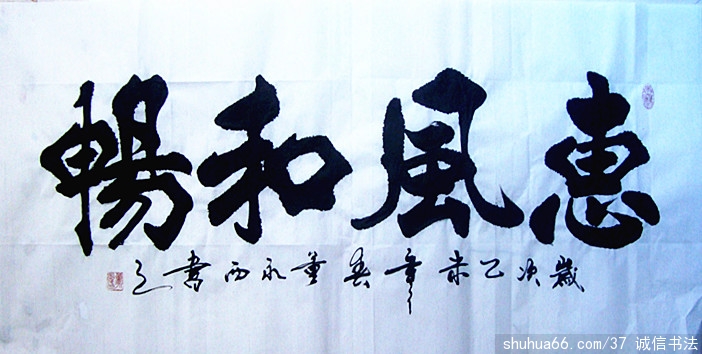 惠風和暢
歲次乙未年春董永西書之
shuhua66.com/37 诚信书法